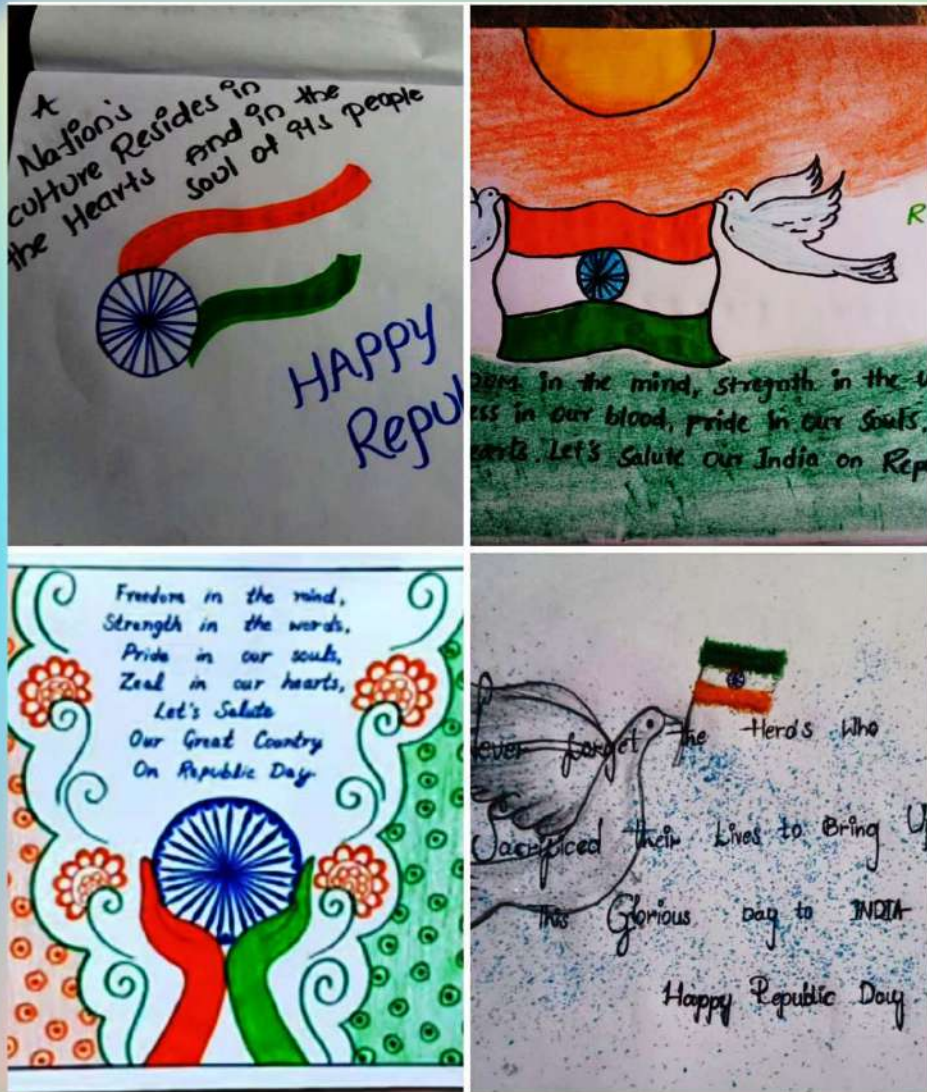 A
Nation's
culture Resides in
the Hearts And in the
soul of its people
HAPPY
Repu
R
in the mind, stregnth in the
ess in our blood, pride in our souls.
earts. Let's salute our India on Rep
Freedom in the mind,
Strength in the words,
Pride in our souls,
Zeal in our hearts,
Let's Salute
Our Great Country
On Republic Day
ever forget the Hero's Who
Sacrificed their Lives to Bring
this Glorious Day to INDIA
Happy Republic Day